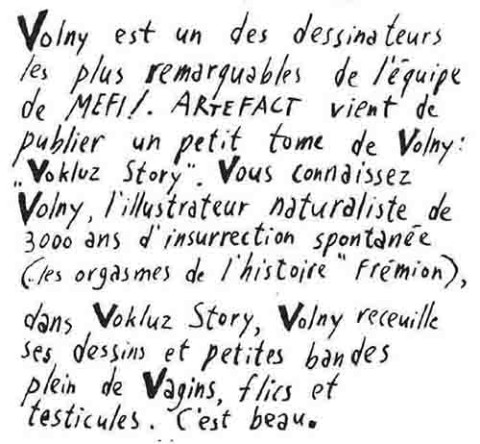 Volny est un des dessinateurs
les plus remarquables de l'équipe
de MEFI!. ARTEFACT vient de
publier un petit tome de Volny:
"Vokluz Story". Vous connaissez
Volny, l'illustrateur naturaliste de
3000 ans d'insurrection spontanée
("les orgasmes de l'histoire" Frémion),
dans Vokluz Story, Volny receuille
ses dessins et petites bandes
plein de Vagins, flics et
testicules. C'est beau.